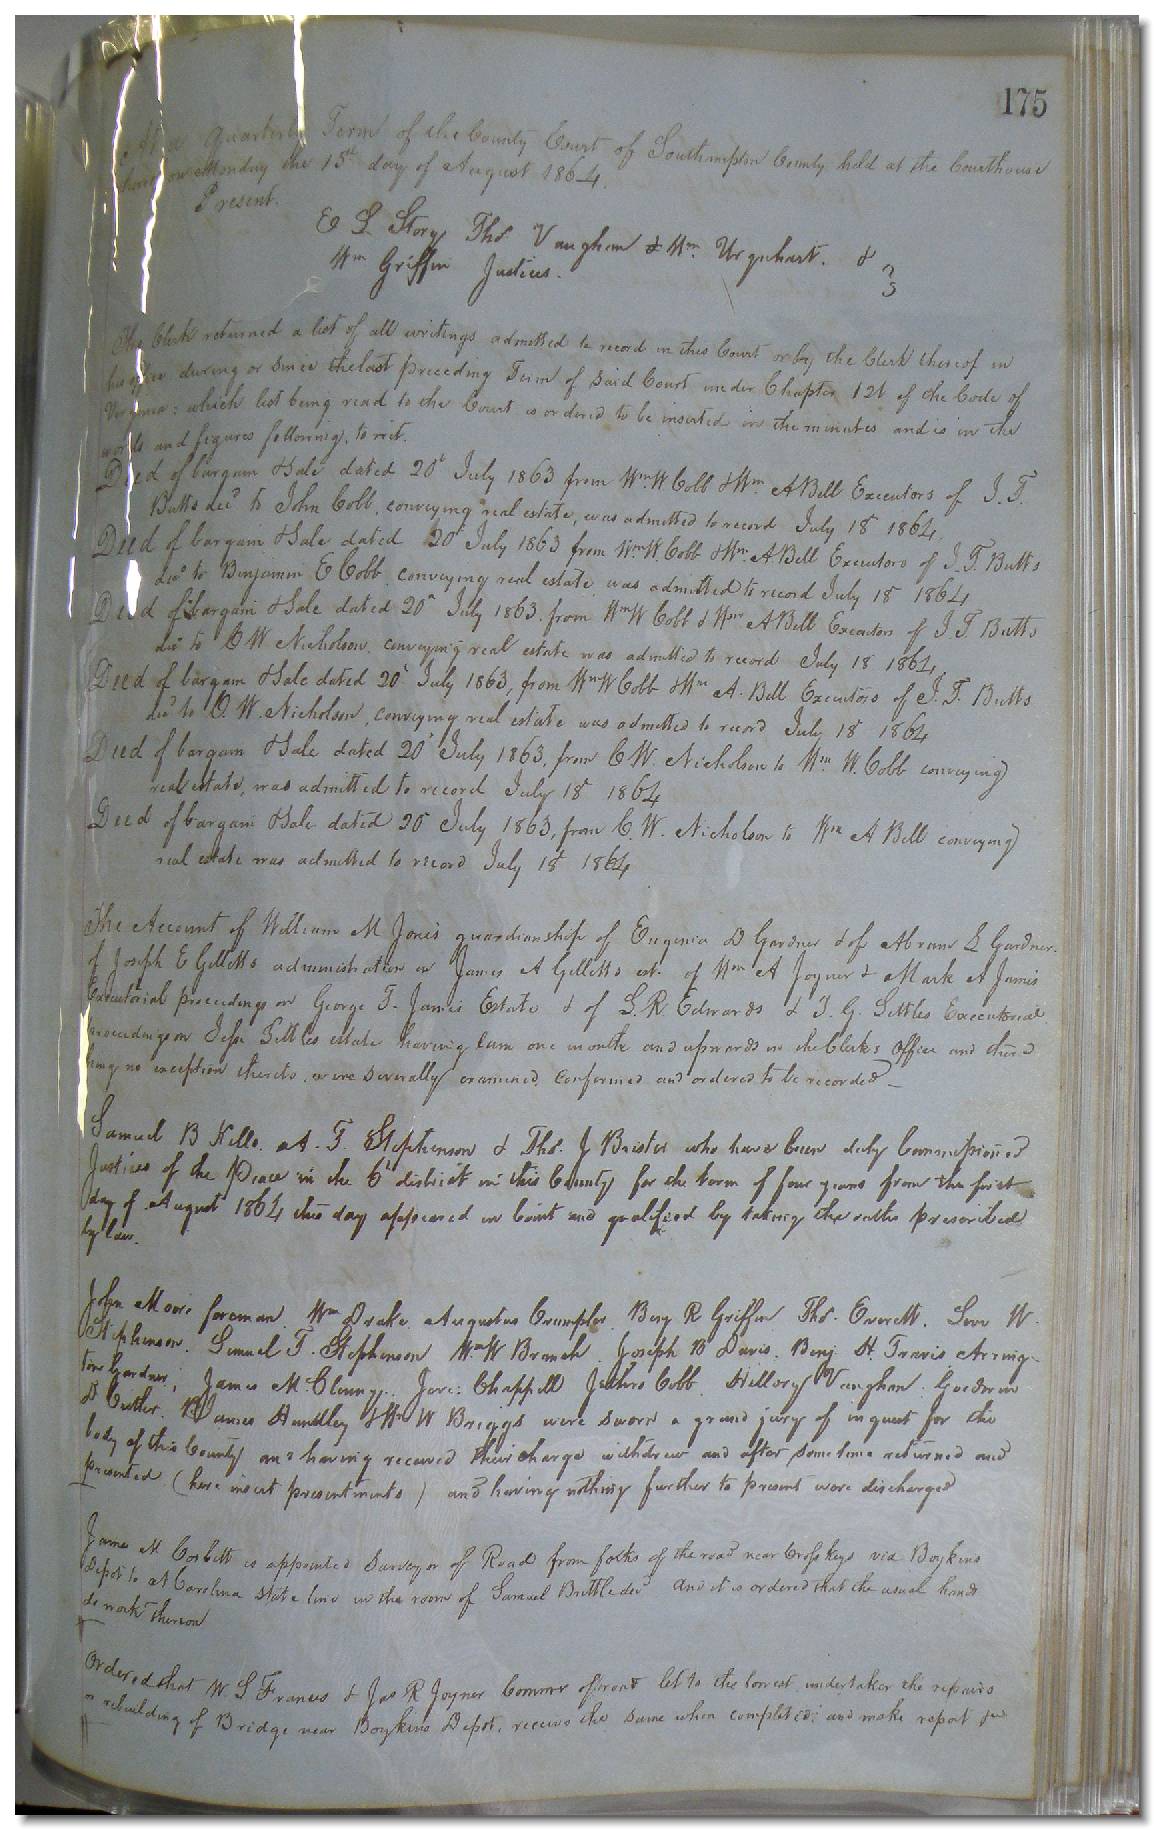 175
At a Quarterly Term of the County Court of Southampton County held at the Courthouse
on Monday the 15th day of August 1864.
Present.
E S Story, Thos. Vaughan & Wm. Urquhart. &
Wm Griffin Justices.
The Clerk returned a list of all writings admitted to record in this Court or by the Clerk thereof in
his office during or since the last preceding Term of said Court under Chapter 121 of the Code of
Virginia: which list being read to the Court is ordered to be inserted in the minutes and is in the
words and figures following, to wit.
Deed of bargain & Sale dated 20th July 1863 from Wm. W Cobb & Wm. A Bell Executors of J. T.
Butts decd to John Cobb, conveying real estate, was admitted to record July 18 1864,
Deed of bargain & Sale dated 20 July 1863 from Wm. W. Cobb & Wm. A Bell Executors of J. T. Butts
decd to Benjamin E Cobb conveying real estate was admitted to record July 18 1864
Deed of bargain & Sale dated 20th July 1863. from Wm W Cobb & Wm A Bell Executors of J T Butts
decd to C W Nicholson, conveying real estate was admitted to record July 18 1864,
Deed of bargain & Sale dated 20th July 1863, from Wm W Cobb & Wm A. Bell Executors of J. T. Butts
decd to C. W. Nicholson, conveying real estate was admitted to record July 18 1864
Deed of bargain & Sale dated 20th July 1863, from C. W. Nicholson to Wm W. Cobb conveying
real estate, was admitted to record July 18 1864
Deed of bargain & Sale dated 20 July 1863, from C. W. Nicholson to Wm A Bell conveying
real estate was admitted to record July 18 1864
The Account of William M Jones guardianship of Eugenia D Gardner & of Abram L Gardner.
of Joseph E Gilletts administration on James A Gilletts est. of Wm A Joyner & Mark A James
Executorial proceedings on George T. James Estate & of G. R. Edwards & T. G. Settles Executorial
proceedings on Settles estate having lain one month and upwards in the Clerks Office and there
being no exception thereto, were severally examined, confirmed and ordered to be recorded
Samuel B Kello. A. T. Stephenson & Thos. J Brister who have been duly Commissioned
Justices of the Peace in the 6th district in this County for the term of four years from the first
day of August 1864 this day appeared in Court and qualified by taking the oaths prescribed
by law.
John Moore foreman. Wm Drake. Augustus Crumpler. Benj R Griffin Thos. Everett. W.
Stephenson. Samuel T. Stephenson Wm W Branch. Joseph B Davis. Benj. H. Travis Arring-
ton Gardner, James McClenny. Chappell Cobb. Hillory Vaughan. Goodwin
D Cutler. James Huntley & Wm W Briggs were sworn a grand jury of inquest for the
body of this County and having received their charge withdrew and after some time returned and
presented (here insert presentments) and having nothing further to present were discharged
James M Corbett is appointed Surveyor of Road from forks of the road near Crosskeys via Boykins
Depot to N Carolina State line in the room of Samuel Brittle decd and it is ordered that the usual hands
do work thereon
Ordered that W. S Francis & Jas R Joyner Commr let to the lowest undertaker the repairs
or rebuilding of Bridge near Boykins Depot, receive the same when completed: and make report